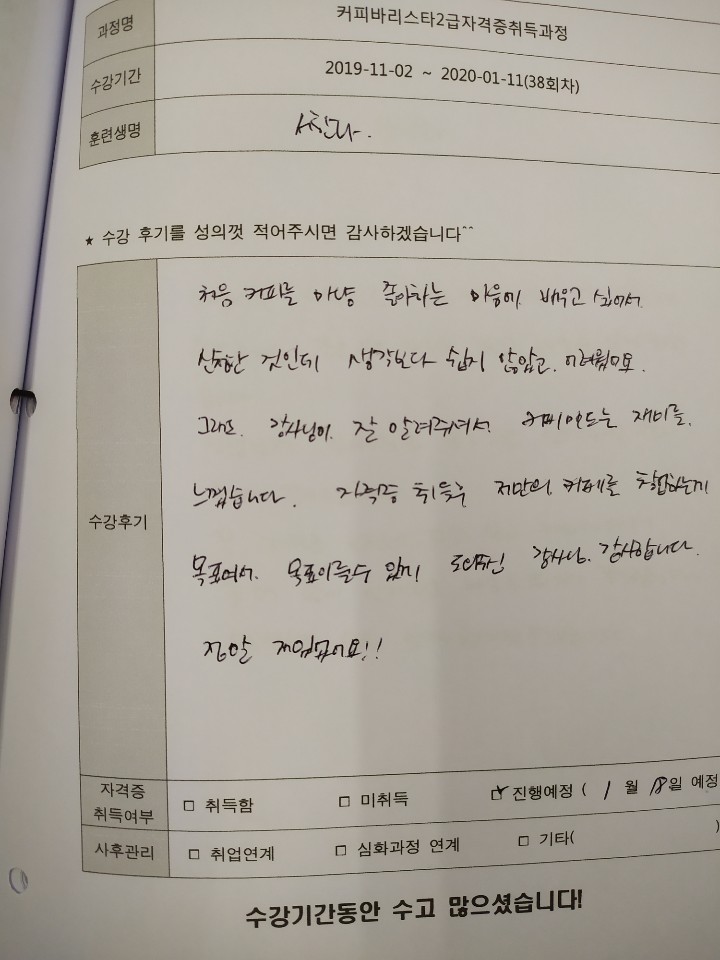 과정명 커피바리스타2급자격증취득과정
수강기간 2019-11-02 ~ 2020-01-11(38회차)
훈련생명
★ 수강 후기를 성의껏 적어주시면 감사하겠습니다^^
수강후기
처음 커피를 마냥 좋아하는 마음에 배우고 싶어서
신청한 것인데 생각보다 쉽지 않았고,
그래도 강사님이 잘 알려주셔서 커피만드는 재미를
느꼈습니다. 자격증 취득후 저만의 카페를 창업하는게
목표여서 목표이룰수 있게 도와주신 강사님 감사합니다.
정말 재밌었어요!!
자격증 취득여부 □ 취득함 □ 미취득 ☑ 진행예정 ( 1 월 18일 예정
사후관리 □ 취업연계 □ 심화과정 연계 □ 기타( )
수강기간동안 수고 많으셨습니다!